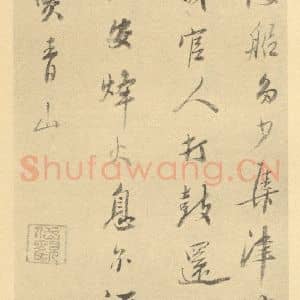 船多少集津
官人打鼓還
安烽火息尔
青山
Shufawang.CN